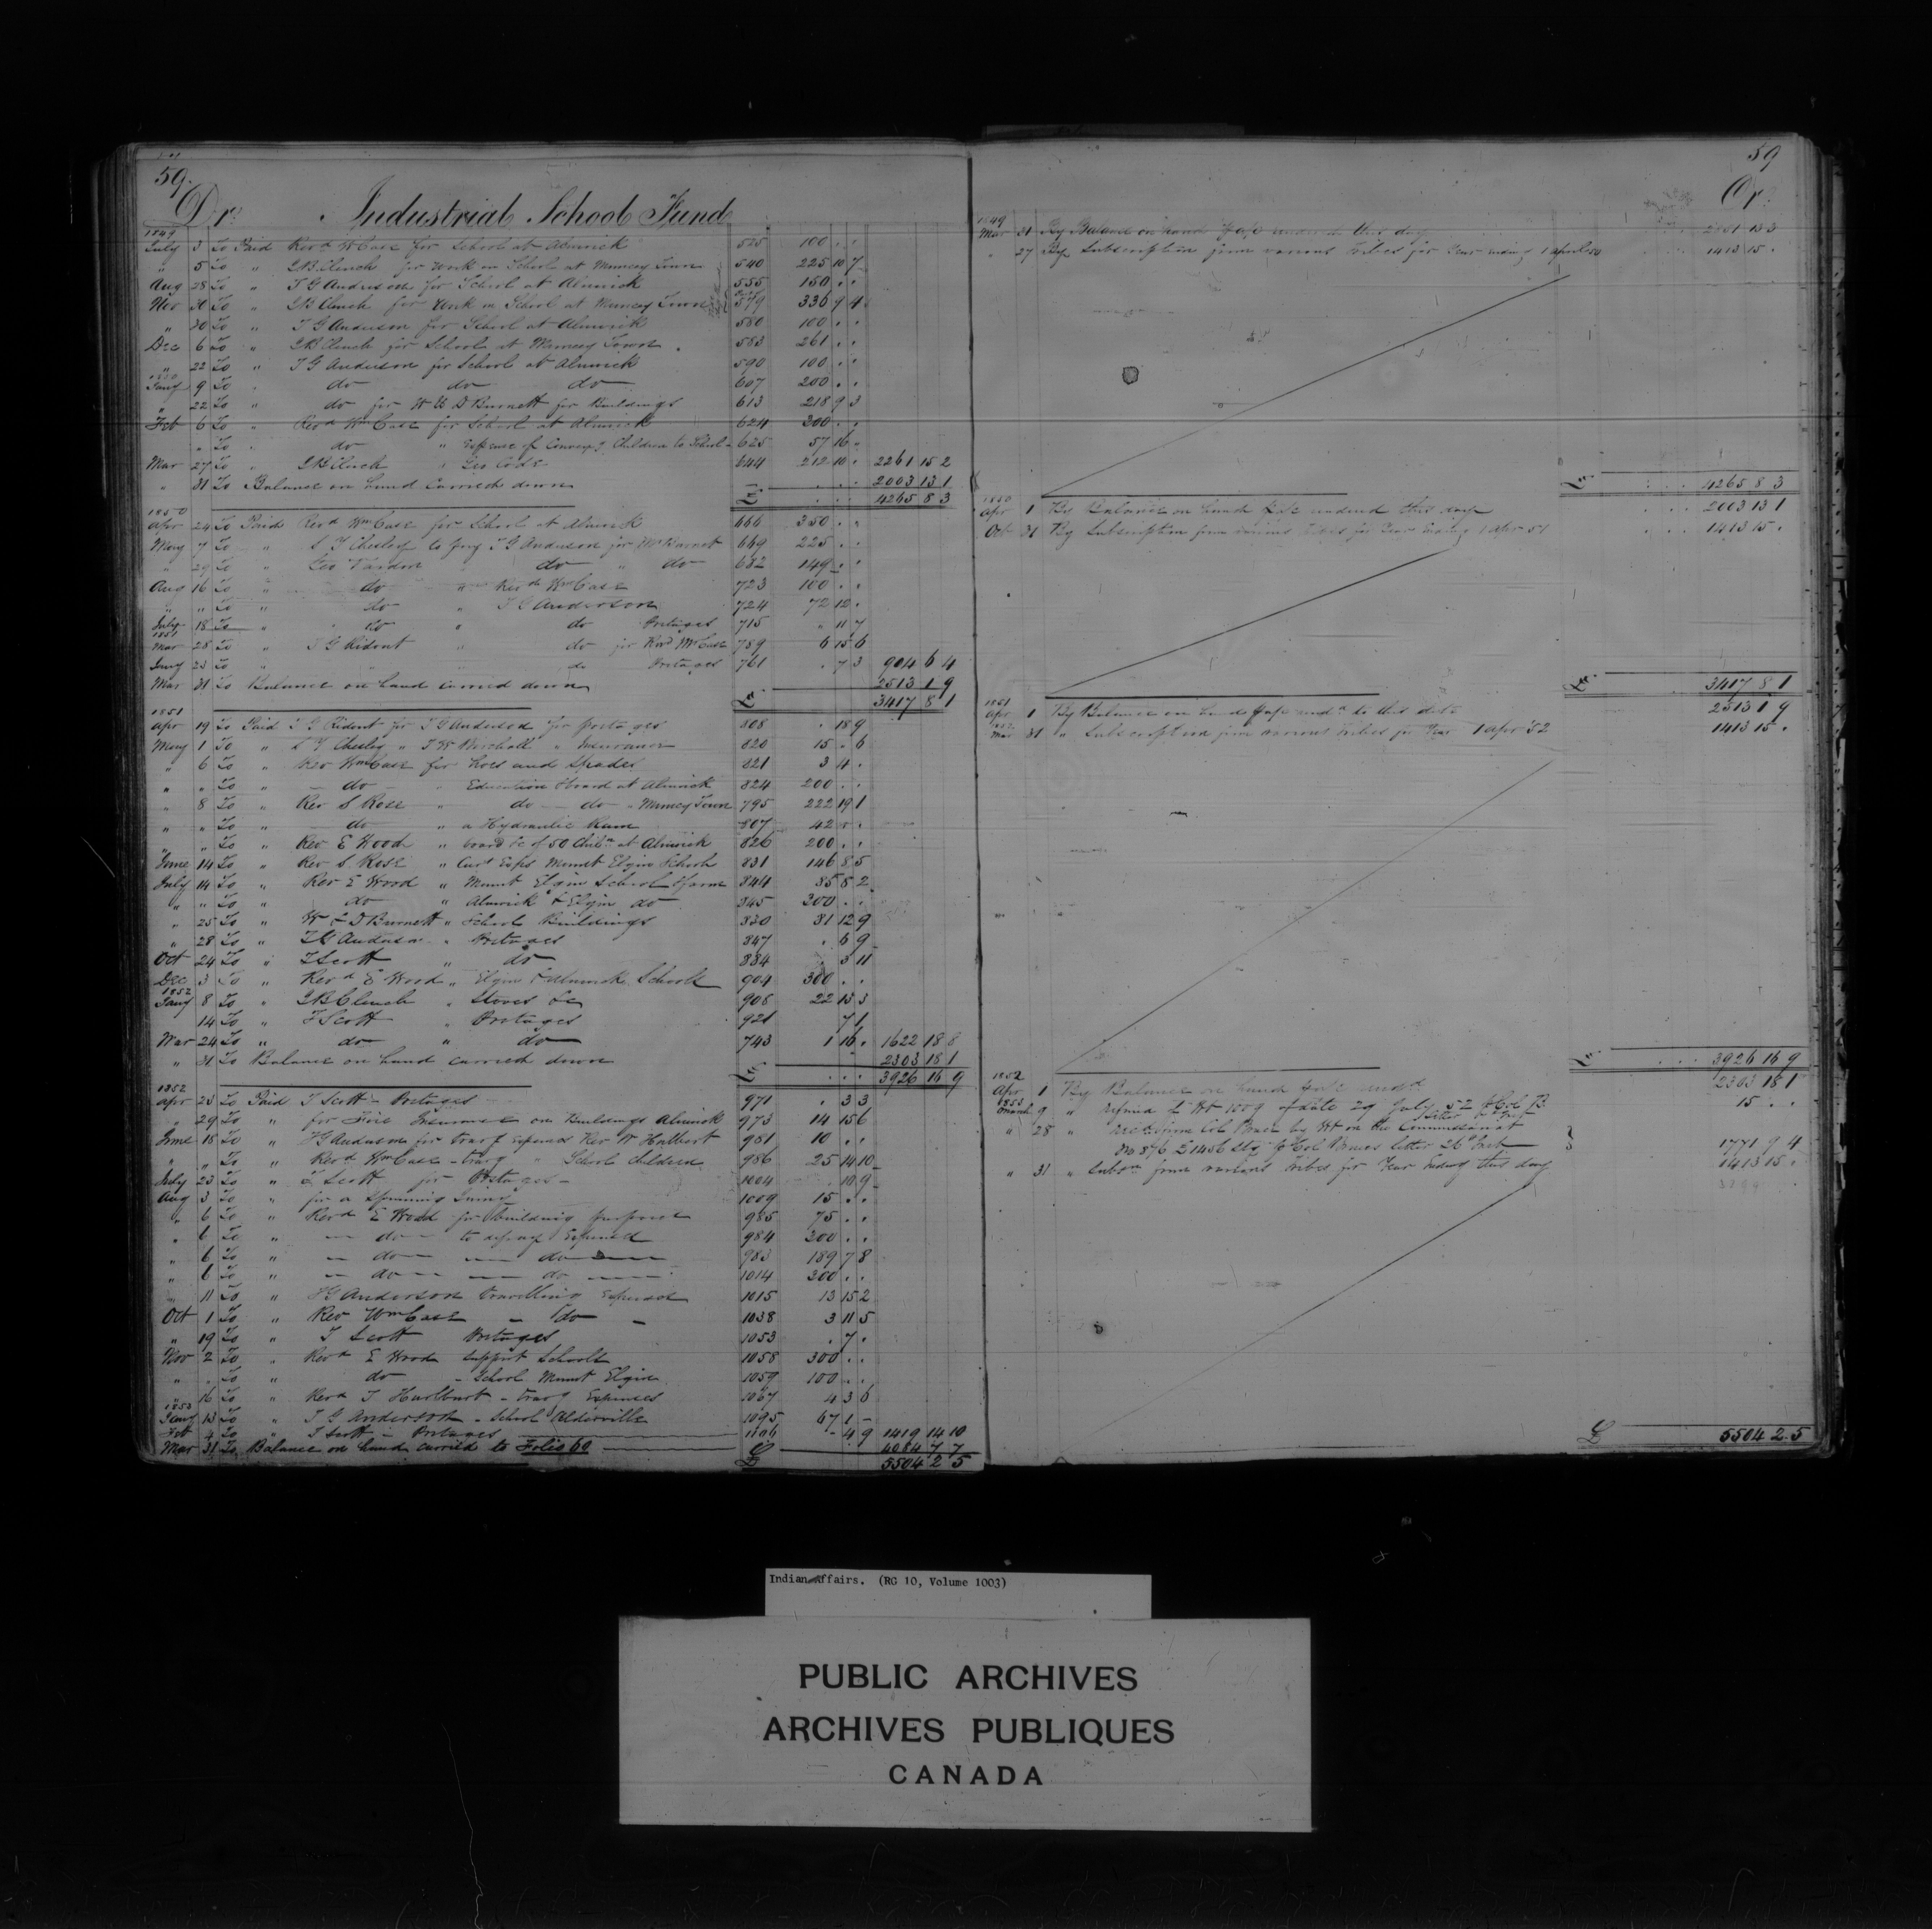 59.
Dr. Industrial School Fund
1849
July 3 To Paid Revd W Case for School at Alnwick 525 100 . .
" 5 To " JB Clench for Work on School at Muncey Town 540 225 10 7
Aug 28 To " T G Anderson for School at Alnwick 555 150 . .
Nov 30 To " JB Clench for Work on School at Muncey Town 579 336 9 4
" 30 To " T G Anderson for School at Alnwick 580 100 . .
Dec 6 To " JB Clench for School at Muncey Town . 583 261 . .
" 22 To " T G Anderson for School at Alnwick 590 100 . .
1850
Jany 9 To " do do do 607 200 . .
" 22 To " do for W & D Burnett for Buildings 613 218 9 3
Feb 6 To " Revd Wm Case for School at Alnwick 624 300 . .
" To " do " Expense of Conveyg Children to School 625 57 16 .
Mar 27 To " JB Clench " Geo Code 644 212 10 . 2261 15 2
" 31 To Balance on hand carried down 2003 13 1
£ 4265 8 3
1850
Apr 24 To Paid Revd Wm Case for School at Alnwick 666 350 . .
May 7 To " S Y Chesley to pay T G Anderson for Mr Burnet 669 225 . .
" 29 To " Geo Vardon " do " do 682 149 . .
Aug 16 To " do " Revd Wm Case 723 100 . .
" " To " do " T G Anderson 724 72 12 .
July 18 To " do " do Postages 715 " 11 7
1851
Mar 28 To " T G Ridout " do for Revd Mr Case 789 6 15 6
Jany 23 To " " " do Postages 761 . 7 3 904 6 4
Mar 31 To Balance on hand carried down 2513 1 9
£ 3417 8 1
1851
Apr 19 To Paid T G Ridout for T G Anderson for postages 808 . 18 9
May 1 To " S Y Chesley " T W Birchall " Insurance 820 15 . 6
" 6 To " Rev Wm Case for hoes and Spades 821 3 4 .
" " To " do " Education & board at Alnwick 824 200 . .
" 8 To " Rev S Rose " do do " Muncey Town 795 222 19 1
" " To " do " a Hydraulic Ram 807 42 . .
" " To " Rev E Wood " board &c of 50 Chiln at Alnwick 826 200 . .
June 14 To " Rev S Rose " Curt Exps Mount Elgin School 831 146 8 5
July 14 To " Rev E Wood " Mount Elgin School & farm 844 85 8 2
" " To " do " Alnwick & Elgin do 845 300 . .
" 25 To " W & D Burnett " School Buildings 830 81 12 9
" 28 To " T G Anderson " Postages 847 . 6 9
Oct 24 To " T Scott " do 884 . 3 11
Dec 3 To " Revd E Wood " Elgin & Alnwick Schools 904 300 . .
1852
Jany 8 To " JB Clench " Stoves &c 908 22 13 3
14 To " T Scott " Postages 921 7 1
Mar 24 To " do " do 743 1 16 . 1622 18 8
" 31 To Balance on hand carried down 2303 18 1
£ 3926 16 9
1852
Apr 23 To Paid T Scott - Postages 971 . 3 3
" 29 To " for Fire Insurance on Buildings Alnwick 973 14 15 6
June 15 To " T G Anderson for travg Expenses Rev W Hulbert 981 10 . .
" " To " Revd Wm Case - travg " School children 986 25 14 10
July 23 To " T Scott for Postages - 1004 . 10 9
Aug 3 To " for a Spinning Jenny 1009 15 . .
" 6 To " Revd E Wood for building purposes 985 75 . .
" 6 To " do to defray Expenses 984 200 . .
" 6 To " do do 983 189 7 8
" 6 To " do do 1014 300 . .
" 11 To " T G Anderson travelling Expenses 1015 13 15 2
Oct 1 To " Rev Wm Case - do - 1038 3 11 5
" 19 To " T Scott Postages 1053 . 7 .
Nov 2 To " Revd E Wood Support Schools 1058 300 . .
" " To " do - School Mount Elgin 1059 100 . .
" 16 To " Revd T Hurlburt - travg Expenses 1067 4 3 6
1853
Jany 13 To " T G Anderson - School Alderville 1095 67 1 -
Feb 4 To " T Scott - Postages 1106 - 4 9 1419 14 10
Mar 31 To Balance on hand carried to Folio 60 4084 7 7
£ 5504 2 5
59
Cr.
1849
Mar 31 By Balance on hand this day 13 3
" 27 By Subscription from various Tribes for Year ending 1 April 50 1413 15 .
£ 4265 8 3
1850
Apr 1 By Balance on hand this day 2003 13 1
Oct 31 By Subscription from various Tribes for Year Ending 1 Apr 51 1413 15 .
£ 3417 8 1
1851
Apr 1 By Balance on hand to this date 2513 1 9
1852
Mar 31 " Subscription from various Tribes for Year 1 Apr 52 1413 15 .
£ 3926 16 9
1852
Apr 1 By Balance on hand 2303 18 1
1853
March 9 " refund of Wt 1009 of date 29 July 52 Col B 15 . .
letter
" 28 " from Col Bruce by Wt on the Commissariat
No 876 £1456 Stg Col Bruces letter 26 Inst 1771 9 4
" 31 " Subsn from various tribes for Year Ending this day 1413 15 .
£ 5504 2 5
Indian Affairs. (RG 10, Volume 1003)
PUBLIC ARCHIVES
ARCHIVES PUBLIQUES
CANADA